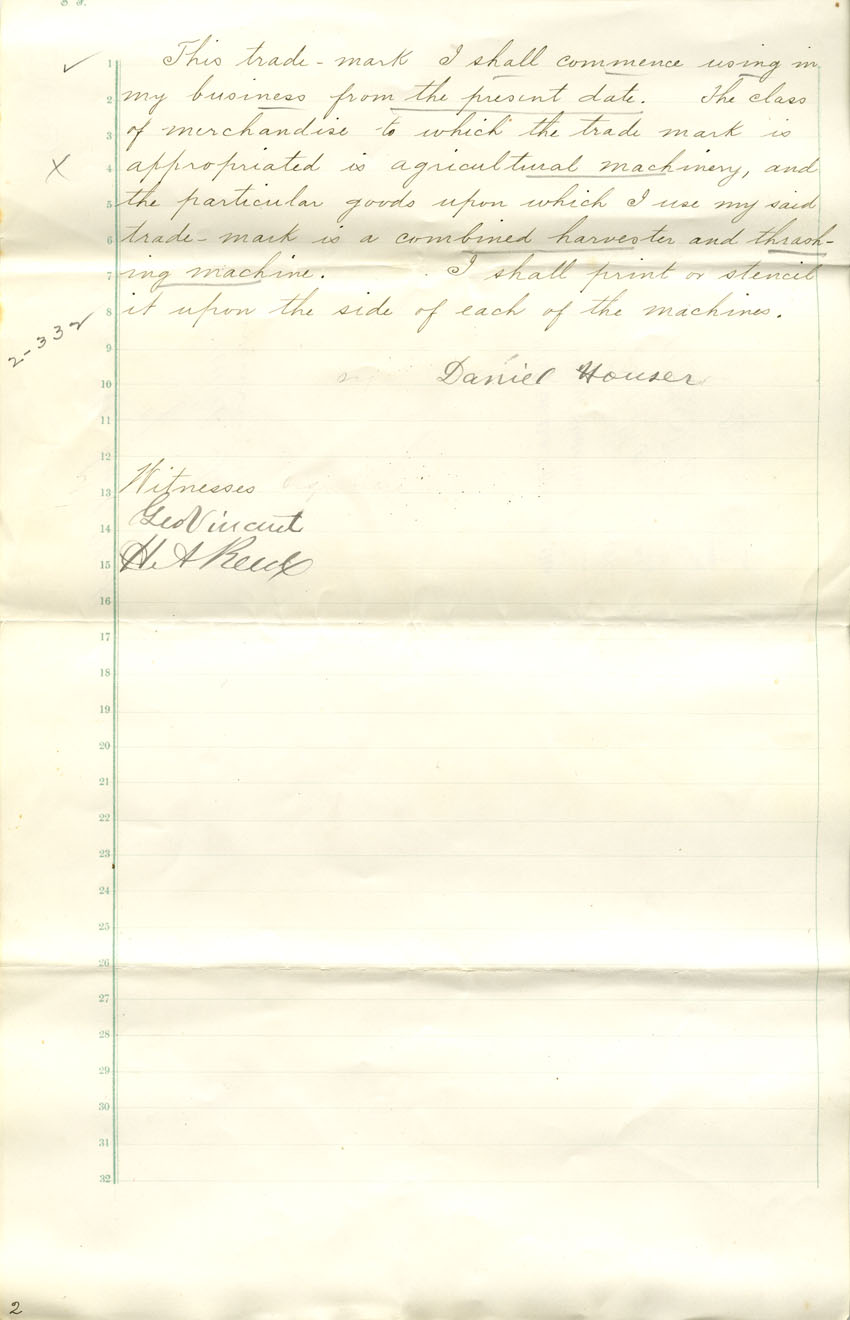 This trade-mark I shall commence using in
my business from the present date. The class
of merchandise to which the trade mark is
appropriated is agricultural machinery, and
the particular goods upon which I use my said
trade-mark is a combined harvester and thrash-
ing machine. I shall print or stencil
it upon the side of each of the machines.
2-332
Daniel Houser
Witnesses
Geo Vincent
H. A.
1
2
3
4
5
6
7
8
9
10
11
12
13
14
15
16
17
18
19
20
21
22
23
24
25
26
27
28
29
30
31
32
2